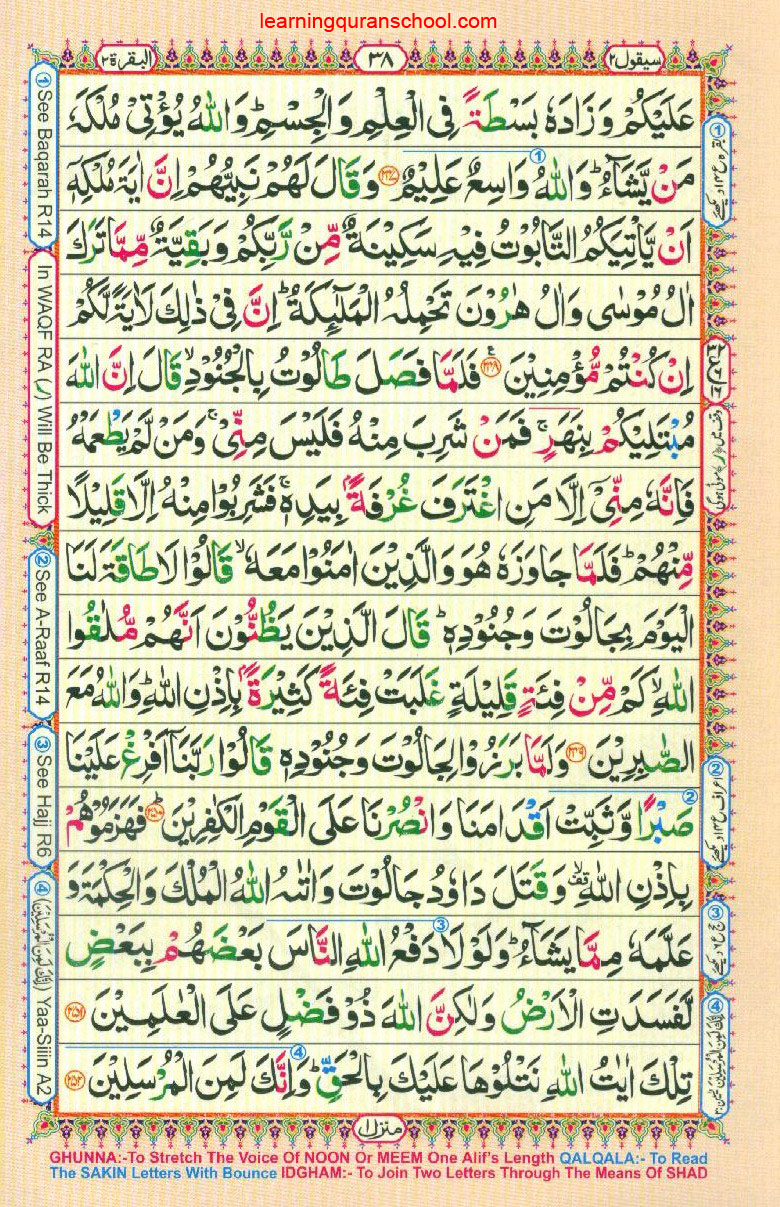 learningquranschool.com
سيقول٢
٣٨
البقرة٢
عَلَيْكُمْ وَزَادَهٗ بَسْطَةً فِى الْعِلْمِ وَالْجِسْمِؕ وَاللّٰهُ يُؤْتِىْ مُلْكَهٗ
مَنْ يَّشَآءُؕ وَاللّٰهُ وَاسِعٌ عَلِيْمٌ ﴿٢٤٧﴾ وَقَالَ لَهُمْ نَبِيُّهُمْ اِنَّ اٰيَةَ مُلْكِهٖۤ
اَنْ يَّاْتِيَكُمُ التَّابُوْتُ فِيْهِ سَكِيْنَةٌ مِّنْ رَّبِّكُمْ وَبَقِيَّةٌ مِّمَّا تَرَكَ
اٰلُ مُوْسٰى وَاٰلُ هٰرُوْنَ تَحْمِلُهُ الْمَلٰٓئِكَةُؕ اِنَّ فِىْ ذٰلِكَ لَاٰيَةً لَّكُمْ
اِنْ كُنْتُمْ مُّؤْمِنِيْنَ ﴿٢٤٨﴾ فَلَمَّا فَصَلَ طَالُوْتُ بِالْجُنُوْدِۙ قَالَ اِنَّ اللّٰهَ
مُبْتَلِيْكُمْ بِنَهَرٍۚ فَمَنْ شَرِبَ مِنْهُ فَلَيْسَ مِنِّىْۚ وَمَنْ لَّمْ يَطْعَمْهُ
فَاِنَّهٗ مِنِّىْۤ اِلَّا مَنِ اغْتَرَفَ غُرْفَةًۢ بِيَدِهٖۚ فَشَرِبُوْا مِنْهُ اِلَّا قَلِيْلًا
مِّنْهُمْؕ فَلَمَّا جَاوَزَهٗ هُوَ وَالَّذِيْنَ اٰمَنُوْا مَعَهٗۙ قَالُوْا لَا طَاقَةَ لَنَا
الْيَوْمَ بِجَالُوْتَ وَجُنُوْدِهٖؕ قَالَ الَّذِيْنَ يَظُنُّوْنَ اَنَّهُمْ مُّلٰقُوا
اللّٰهِۙ كَمْ مِّنْ فِئَةٍ قَلِيْلَةٍ غَلَبَتْ فِئَةً كَثِيْرَةًۢ بِاِذْنِ اللّٰهِؕ وَاللّٰهُ مَعَ
الصّٰبِرِيْنَ ﴿٢٤٩﴾ وَلَمَّا بَرَزُوْا لِجَالُوْتَ وَجُنُوْدِهٖ قَالُوْا رَبَّنَاۤ اَفْرِغْ عَلَيْنَا
صَبْرًا وَّثَبِّتْ اَقْدَامَنَا وَانْصُرْنَا عَلَى الْقَوْمِ الْكٰفِرِيْنَؕ ﴿٢٥٠﴾ فَهَزَمُوْهُمْ
بِاِذْنِ اللّٰهِۙ وَقَتَلَ دَاوٗدُ جَالُوْتَ وَاٰتٰىهُ اللّٰهُ الْمُلْكَ وَالْحِكْمَةَ وَ
عَلَّمَهٗ مِمَّا يَشَآءُؕ وَلَوْ لَا دَفْعُ اللّٰهِ النَّاسَ بَعْضَهُمْ بِبَعْضٍ
لَّفَسَدَتِ الْاَرْضُ وَلٰكِنَّ اللّٰهَ ذُوْ فَضْلٍ عَلَى الْعٰلَمِيْنَ ﴿٢٥١﴾
تِلْكَ اٰيٰتُ اللّٰهِ نَتْلُوْهَا عَلَيْكَ بِالْحَقِّؕ وَاِنَّكَ لَمِنَ الْمُرْسَلِيْنَ ﴿٢٥٢﴾
① See Baqarah R14
In WAQF RA (ر) Will Be Thick
② See A-Raaf R14
③ See Hajj R6
④ (اِنَّكَ لَمِنَ الْمُرْسَلِيْنَ) Yaa-Siiin A2
منزل١
GHUNNA:-To Stretch The Voice Of NOON Or MEEM One Alif's Length QALQALA:- To Read
The SAKIN Letters With Bounce IDGHAM:- To Join Two Letters Through The Means Of SHAD